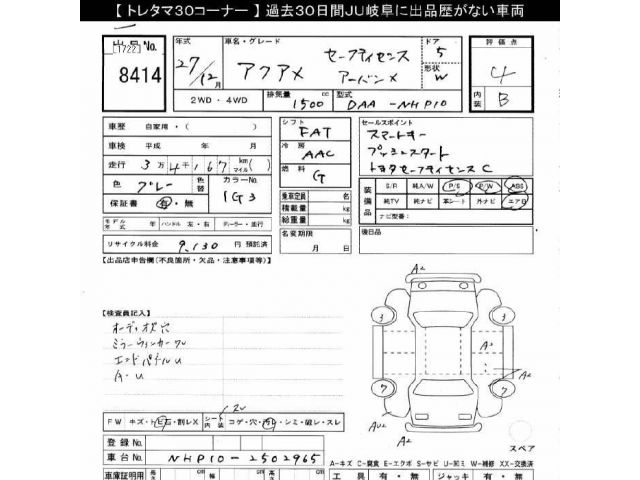 【トレタマ30コーナー】過去30日間JU岐阜に出品歴がない車両
出品No.
[1722]
8414
年式
27/12月
車名・グレード
アクアメ
セーフティセンス
アーバンX
ドア
5
形状
W
評価点
4
内装
B
2WD・4WD
排気量
1500 cc
型式
DAA-NHP10
車歴 自家用・( )
車検 平成 年 月
走行 3万4千167 km マイル( )
色 グレー
色替
カラーNo.
1G3
保証書 有・無
シフト
FAT
冷房
AAC
燃料
G
セールスポイント
スマートキー
プッシュスタート
トヨタセーフティセンスC
乗車定員 名
積載量 kg
総重量 kg
名変期限
月 日
装備品
S/R 純A/W P/S P/W ABS
純TV 純ナビ 革シート 外ナビ エアB
ナビ型番:
後日品
モデル年式 年 ハンドル 左・右 ディーラー・並行
リサイクル料金 9,130 円 預託済
【出品店申告欄(不良箇所・欠品・注意事項等)】
【検査員記入】
オーディオズ穴
ミラーウィンカーワレ
エンドパネルU
A・U
A2
3
3
A3
A2
7
7
AU2
A2
スペア
FW キズ・トビ石・割レX
シート内装
コゲ・穴・汚レ・シミ・破レ・スレ
登録No.
車台No. NHP10-2502965
A-キズ C-腐食 E-エクボ S-サビ U-凹ミ W-補修 XX-交換済
車庫証明用 長さ cm 幅 cm 高さ cm
工具 有・無 ジャッキ 有・無